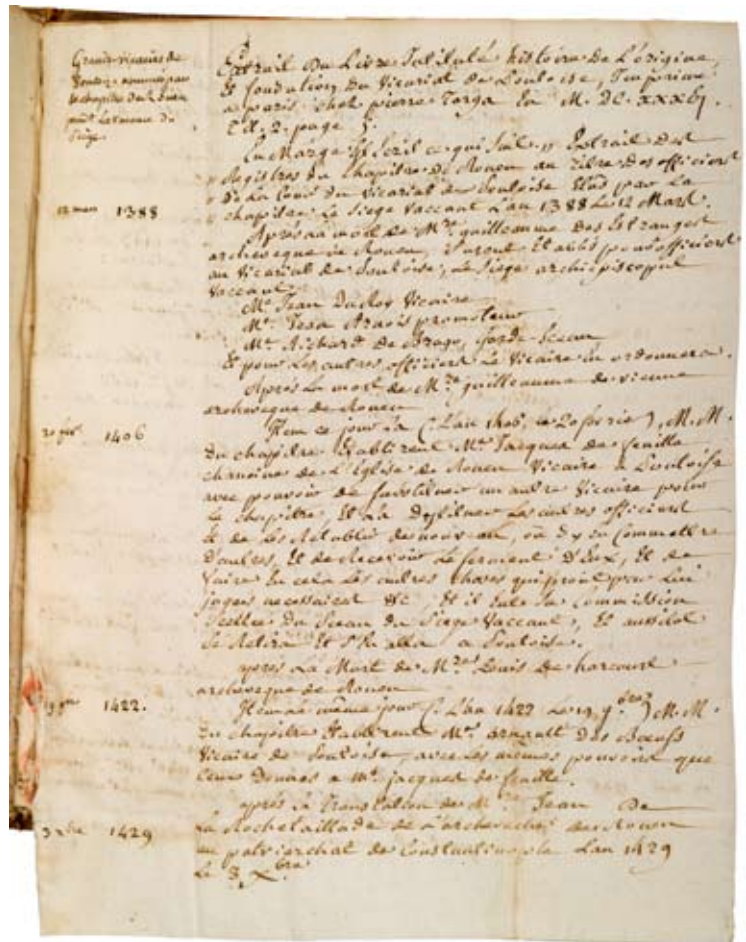 Grands vicaires de
Pontoise nommés par
le chapitre de Rouen
pendt la vacance du
Siège.
Extrait Du Livre Intitulé histoire De L'origine,
Et fondation Du Vicariat De Pontoise, Imprimé
a paris chez pierre Targa En M. DC. XXXVI.
page 5.
En Marge Est Ecrit ce qui suit, " Extrait Des
" Registres Du Chapitre De Rouen au Titre Des officiers
" De La Cour Du Vicariat de Pontoise Elus par Le
12 mars 1388
" chapitre Le Siege Vaccant L'an 1388 Le 12 Mars.
Après la mort de Mre guillaume Des Estranges
archeveque de Rouen, furent Etablis pour officiers
au Vicariat de Pontoise, Le Siege archiepiscopal
Vaccant
Me Jean Du Roy Vicaire
Me Jean promoteur
Me Richard De garde Sceau
Et pour Les autres officiers Le Vicaire en ordonnera.
Après La mort de Mre guillaume de vienne
archeveque de Rouen
20 fer. 1406
Item ce jour la (L'an 1406, le 20 ferie) M. M.
Du chapitre Etablirent Me Jacques de feuilla
chanoine de L'Eglise de Rouen Vicaire a Pontoise
avec pouvoir de substituer un autre Vicaire pour
Le chapitre, Et Destituer Les autres officiers
Et de Les Rétablir de nouveau, ou d'y en Commettre
D'autres, Et de Recevoir Le serment D'Eux, Et de
faire En cela Les autres choses qui seront par Lui
jugées necessaires &c, Et il Eut Sa Commission
Scellée Du Sceau Du Siege Vaccant, Et aussitot
Se Retira Et S'En alla a Pontoise.
apres La Mort de Mre Louis de harcourt
archeveque de Rouen
19 9bre 1422.
Item Le même jour (L'an 1422 Le 19 9bre) M. M.
Du chapitre Etablirent Me arnault Des Bœufs
Vicaire de Pontoise, avec Les memes pouvoirs que
Ceux Donnés a Me jacques de feuille.
après La Translation de Mre Jean De
3 xbre 1429
La Rochetaillade de L'archeveché de Rouen
au patriarchat de Constantinople Lan 1429
Le 3 Xbre